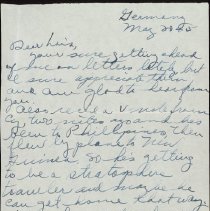 Germany
May 20 45
Dear Sis,
Your sure getting ahead
of me on letters lately but
I sure appreciate them
and am glad to hear from
you. Also rec'd a V mail from
Cy two nites ago and has
been to Phillipines, then
flew by plane to New
Guinea. So he's getting
to be a
traveler and maybe he
can get home that way.